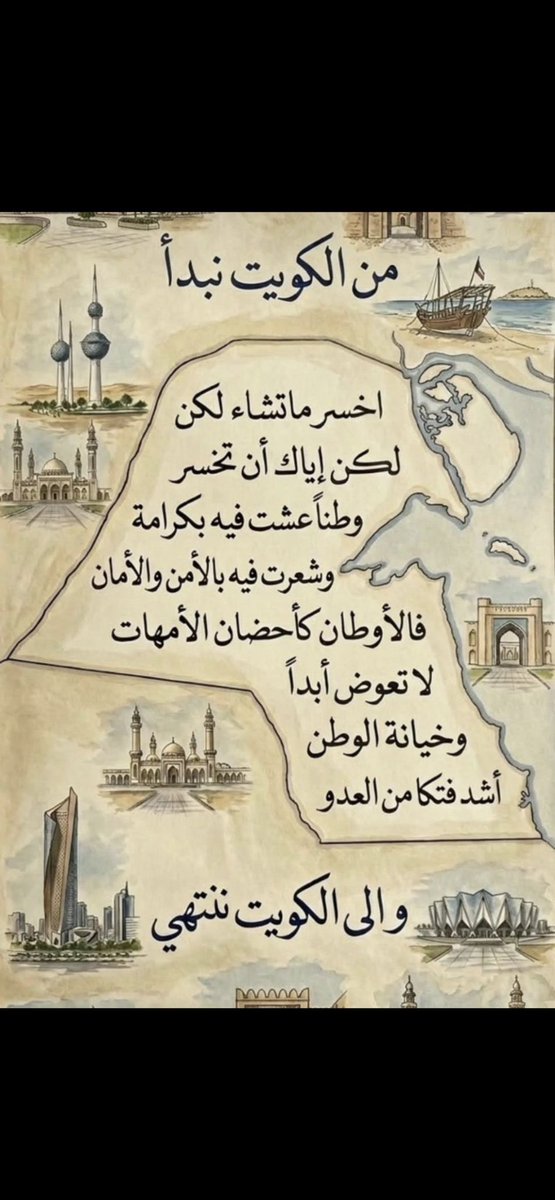 من الكويت نبدأ
اخسر ماتشاء لكن
لكن إياك أن تخسر
وطناً عشت فيه بكرامة
وشعرت فيه بالأمن والأمان
فالأوطان كأحضان الأمهات
لا تعوض أبداً
وخيانة الوطن
أشد فتكا من العدو
و الى الكويت ننتهي